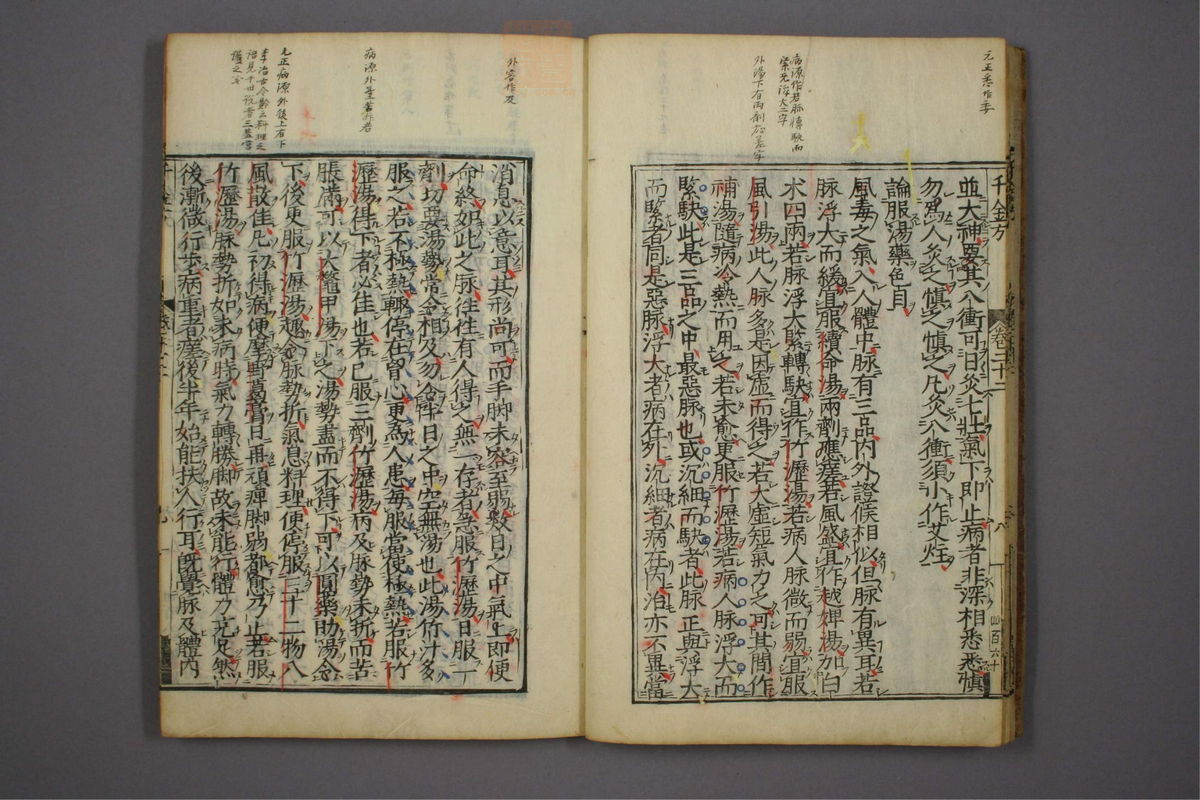 元正悉作委
千金方 卷二十二 八 四百六十
並大神要其八衝可日灸七壯氣下即止病者非深相悉悉慎
勿爲人灸之慎之慎之凡灸八衝須小作艾炷
論服湯藥色目
風毒之氣入人體中脉有三品內外證候相似但脉有異耳若
脉浮大而緩宜服續命湯兩劑應瘥若風盛宜作越婢湯加白
朮四兩若脉浮大緊轉駃宜作竹瀝湯若病人脉微而弱宜服
風引湯此人脉多是因虛而得之若大虛短氣力乏可其間作
補湯隨病冷熱而用之若未愈更服竹瀝湯若病人脉浮大而
緊駃此是三品之中最惡脉也或沉細而駃者此脉正與浮大
而緊者同是惡脉浮大者病在外沉細者病在內治亦不異當
外容作及
消息以意耳其形尚可而手脚未容至弱數日之中氣上即便
命終如此之脉往往有人得之無一存者急服竹瀝湯日服一
劑切要湯勢常令相及勿令半日之中空無湯也此湯竹汁多
服之若不極熱輒停在胷心更爲人患每服當使極熱若服竹
瀝湯得下者必佳也若已服三劑竹瀝湯病及脉勢未折而苦
脹滿可以大鼈甲湯下之湯勢盡而不得下可以圓藥助湯令
下後更服竹瀝湯趣令脉勢折氣息料理便停服三十二物八
風散佳凡初得病便摩野葛膏日再頑痺脚弱都愈乃止若服
竹瀝湯脉勢折如未病時氣力轉勝脚故未能行體力充足然
後漸微行步病重者瘥後半年始能扶人行耳既覺脉及體內